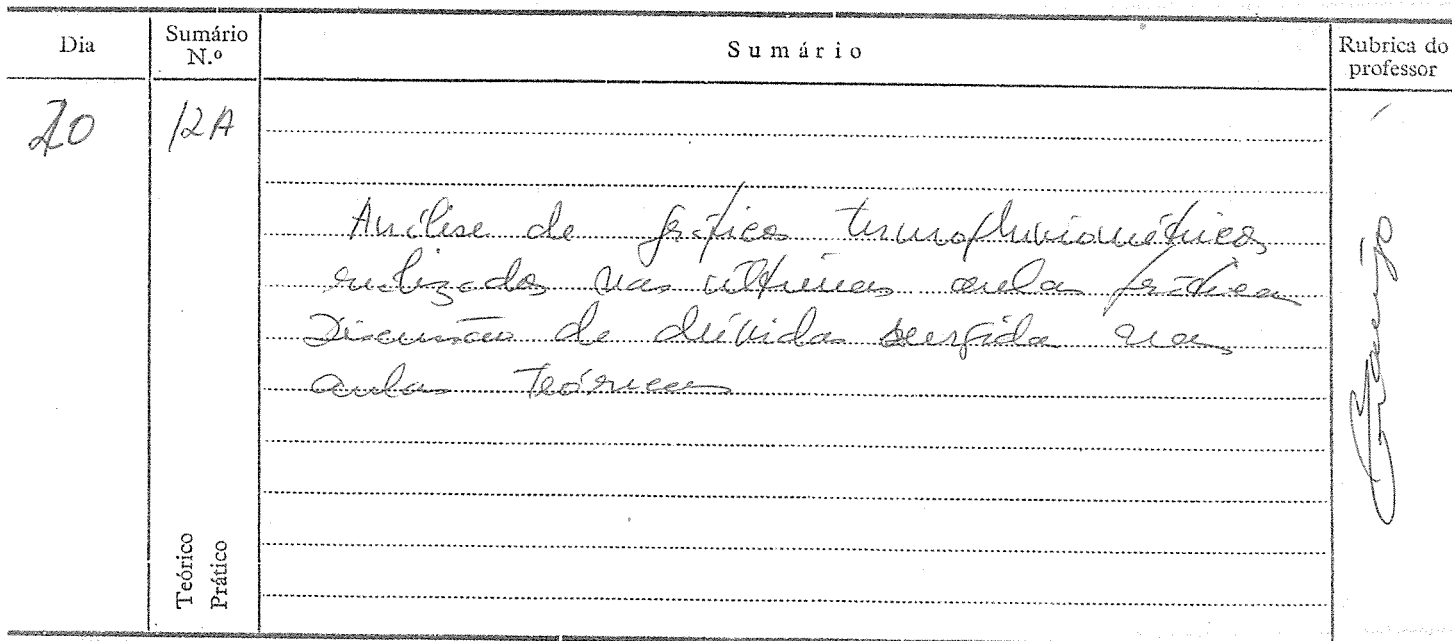 Dia
Sumário N.º
Sumário
Rubrica do professor
20
12A
Análise de gráficos termopluviométricos
realizados nas últimas aulas práticas
Discussão de dúvidas surgidas nas
aulas Teóricas
Teórico
Prático